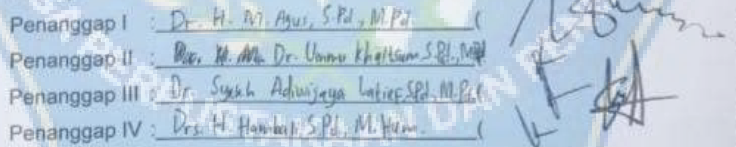 Penanggap I : Dr. H. M. Agus, S.Pd., M.Pd. (
Penanggap II : Dr. Ummu Khaltsum, S.Pd., M.Pd (
Penanggap III : Dr. Syekh Adiwijaya Latief, S.Pd., M.Pd. (
Penanggap IV : Drs. H. Hambali, S.Pd., M.Hum. (